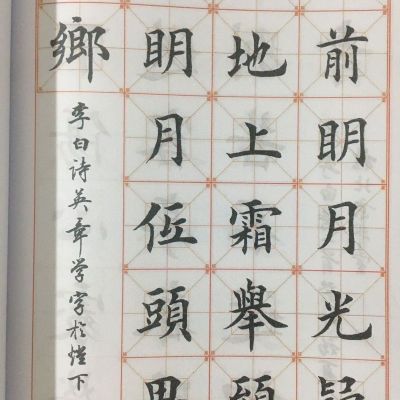 前明月光疑
地上霜舉頭
明月低頭思
鄉
李白诗英章学字於燈下